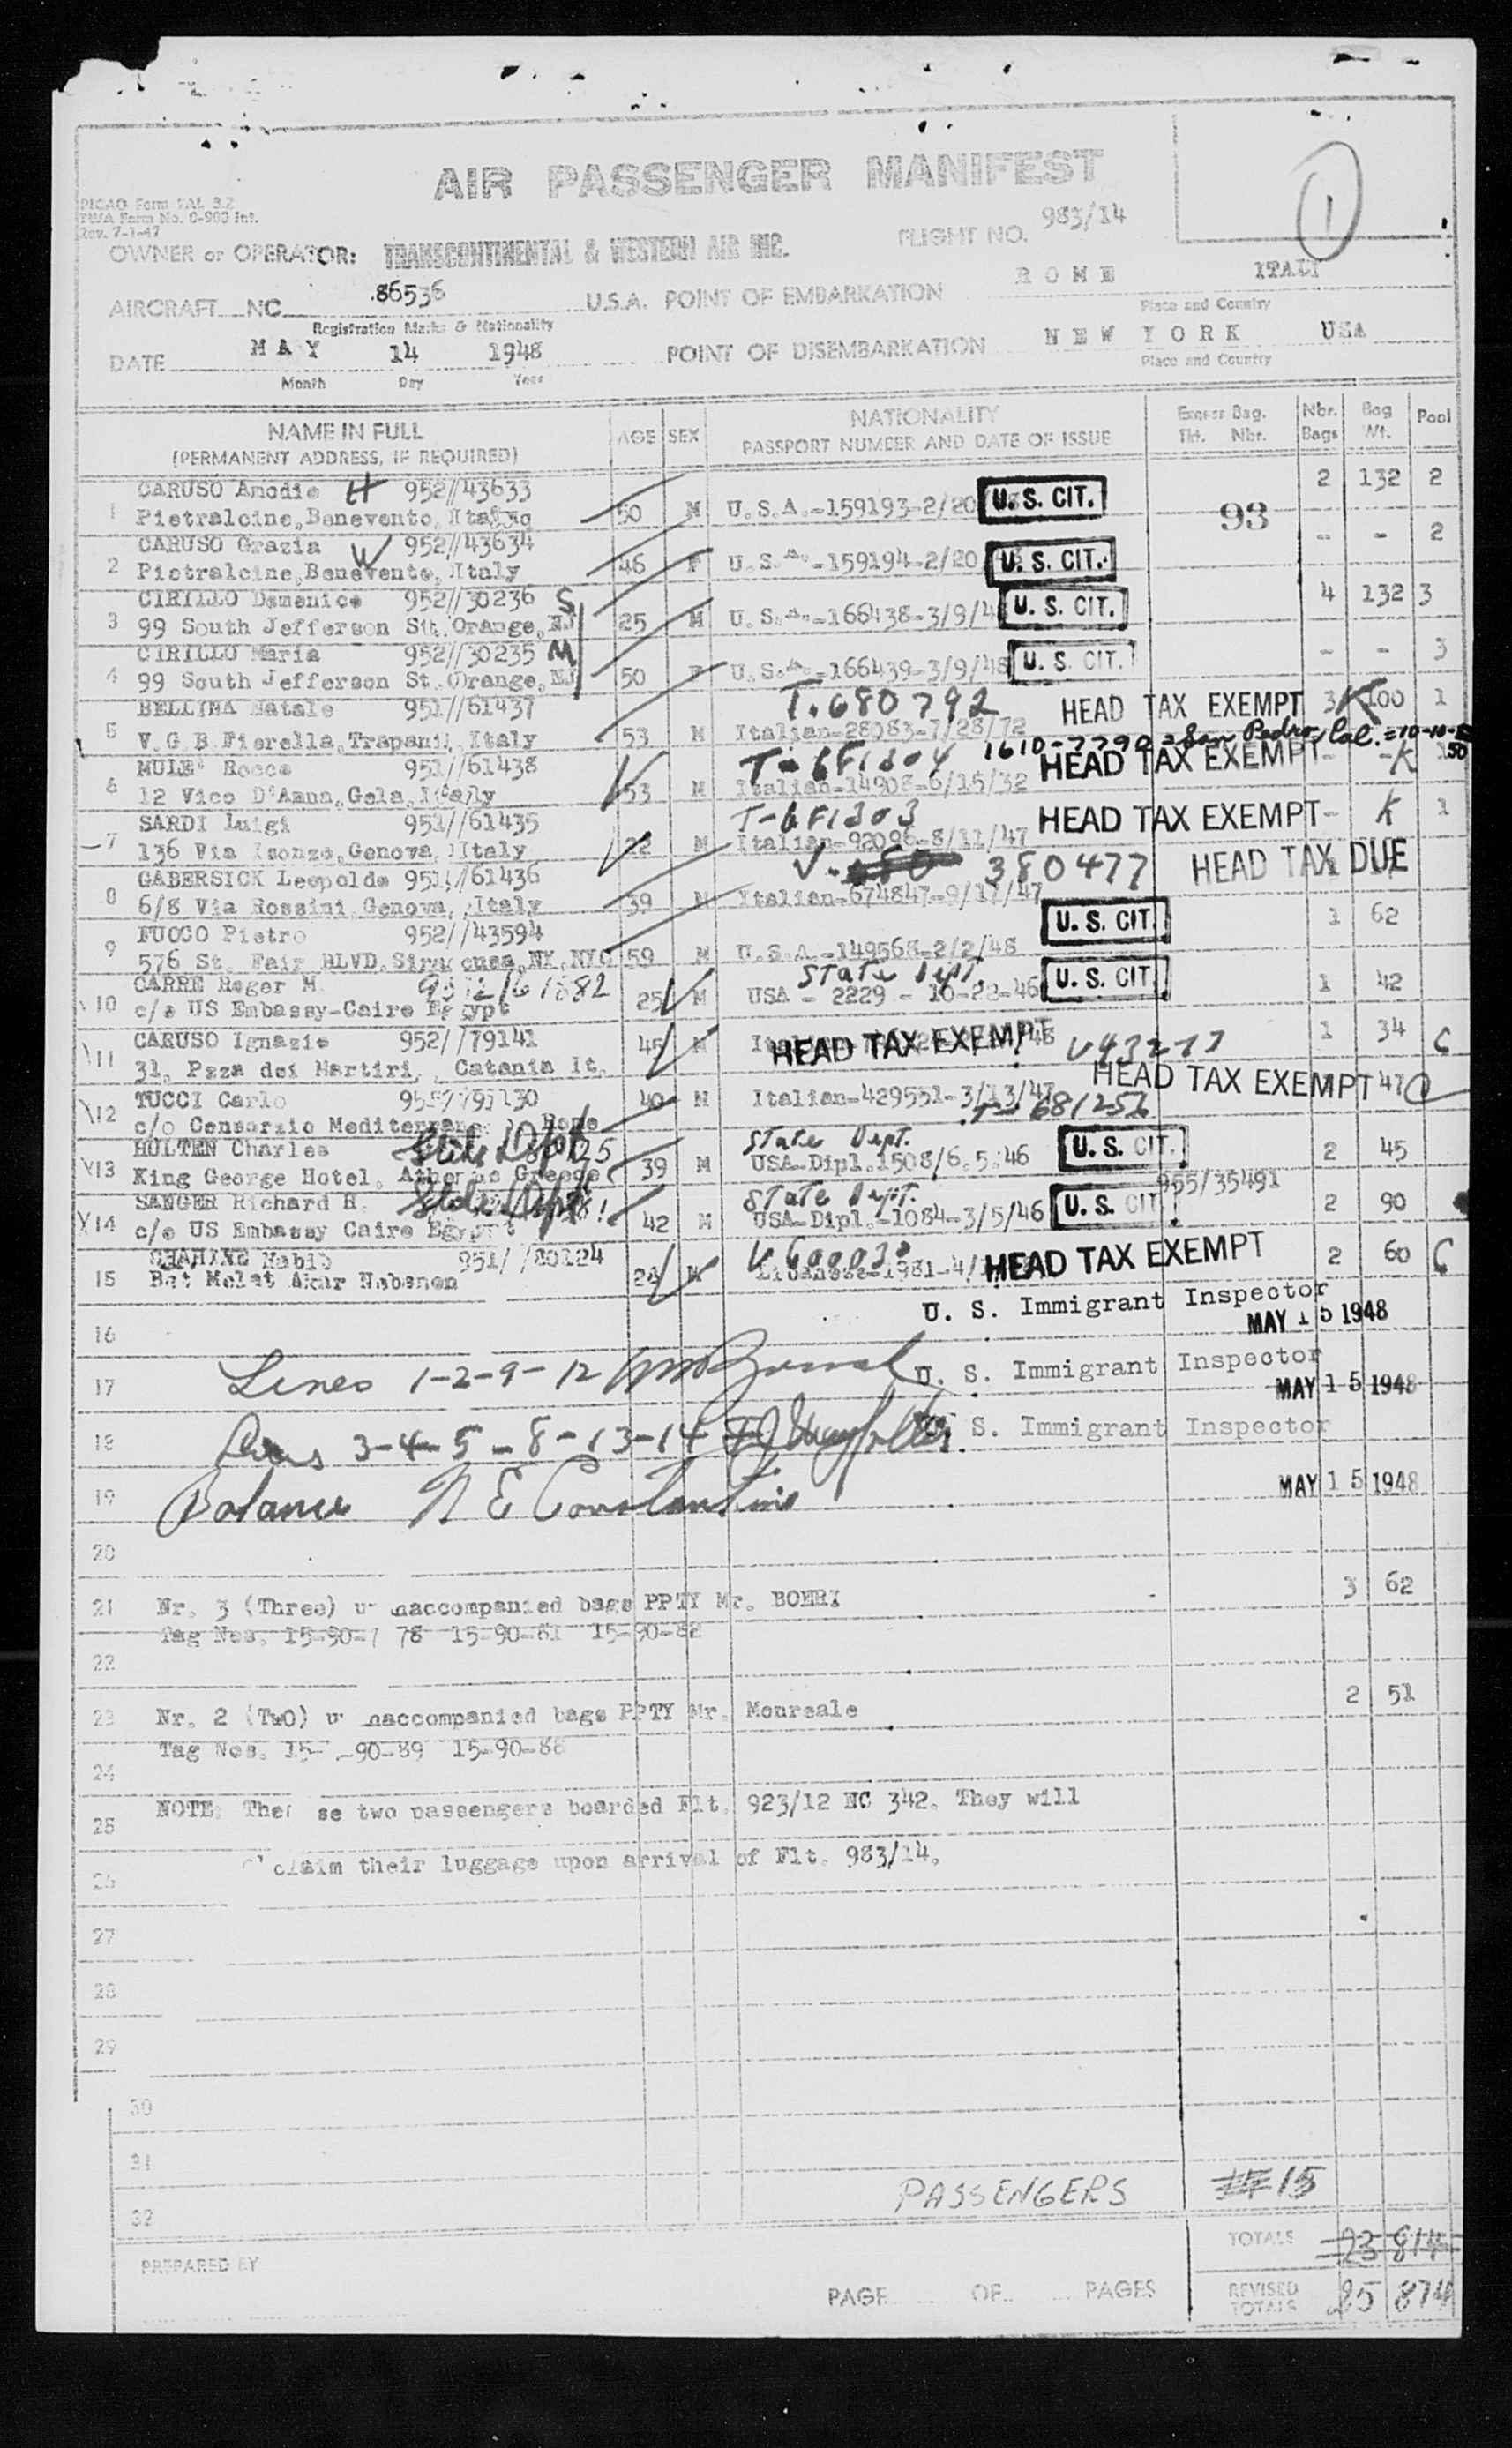 AIR PASSENGER MANIFEST
1
PICAO Form FAL 3.2
TWA Form No. O-903 Int.
Rev. 7-1-47
FLIGHT NO. 983/14
OWNER or OPERATOR: TRANSCONTINENTAL & WESTERN AIR INC.
AIRCRAFT NC 86536 U.S.A. POINT OF EMBARKATION ROME ITALY
Registration Marks & Nationality Place and Country
DATE MAY 14 1948 POINT OF DISEMBARKATION NEW YORK USA
Month Day Year Place and Country
NAME IN FULL AGE SEX NATIONALITY Excess Bag. Nbr. Bag Pool
(PERMANENT ADDRESS, IF REQUIRED) PASSPORT NUMBER AND DATE OF ISSUE Tkt. Nbr. Bags Wt.
1 CARUSO Amodio H 952//43633 2 132 2
Pietralcine, Benevento, Italy 50 M U.S.A.-159193-2/20 U.S. CIT. 93
2 CARUSO Grazia W 952//43634 - - 2
Pietralcine, Benevento, Italy 46 F U.S.A.-159194-2/20 U.S. CIT.
3 CIRILLO Domenico 952//30236 S 4 132 3
99 South Jefferson St. Orange, NJ 25 M U.S.A.-166438-3/9/4 U.S. CIT.
4 CIRILLO Maria 952//30235 M - - 3
99 South Jefferson St. Orange, NJ 50 F U.S.A.-166439-3/9/48 U.S. CIT.
5 BELLINA Natale 951//61437 T.680792 HEAD TAX EXEMPT 3 K 100 1
V.G.B. Fiorella, Trapani, Italy 53 M Italian-28083-7/28/72
1610-7790 = San Pedro, Cal. = 10-10-
6 MULE' Rocco 951//61438 HEAD TAX EXEMPT - - K
12 Vico D'Anna, Gela, Italy 53 M Italian-14908-6/15/32
7 SARDI Luigi 951//61435 HEAD TAX EXEMPT - K 1
136 Via Isonzo, Genova, Italy 22 M Italian-92096-8/11/47
8 GABERSICK Leopoldo 951//61436 V. 380477 HEAD TAX DUE
6/8 Via Rossini Genova, Italy 39 M Italian-674847-9/17/47
9 FUOCO Pietro 952//43594 U.S. CIT 1 62
576 St. Fair BLVD. Siracusa, NY, NYC 59 M U.S.A.-149568-2/2/48
10 CARRE Roger M. State Dept. U.S. CIT 1 42
c/o US Embassy-Cairo Egypt 25 M USA - 2229 - 10-22-46
11 CARUSO Ignazio 952//79141 45 M HEAD TAX EXEMPT V43277 1 34 C
31, Pzza dei Martiri, Catania It.
12 TUCCI Carlo 40 M Italian-429551-3/13/47 HEAD TAX EXEMPT 47
c/o Consorzio Mediterraneo Rome T-681256
13 HOLTEN Charles State Dept. State Dept. U.S. CIT. 2 45
King George Hotel, Athens Greece 39 M USA-Dipl.1508/6.5.46
955/35491
14 SANGER Richard H. State Dept. State Dept. U.S. CIT 2 90
c/o US Embassy Cairo Egypt 42 M USA-Dipl.-1084-3/5/46
15 951//80124 V600030 HEAD TAX EXEMPT 2 60 C
Bat Melat Akar Nabenon 24 M
U. S. Immigrant Inspector
MAY 15 1948
16
17 Lines 1-2-9-12 U. S. Immigrant Inspector
MAY 15 1948
18 Lines 3-4-5-8-13-14 U. S. Immigrant Inspector
19 Balance N E Constantine MAY 15 1948
20
21 Nr. 3 (Three) unaccompanied bags PPTY Mr. BOERI 3 62
Tag Nos. 15-90-78 15-90-81 15-90-82
22
23 Nr. 2 (TwO) unaccompanied bags PPTY Mr. Monreale 2 51
Tag Nos. 15-90-89 15-90-88
24
25 NOTE: These two passengers boarded Flt. 923/12 NC 342. They will
26 claim their luggage upon arrival of Flt. 983/14.
27
28
29
30
31
PASSENGERS 15
32
TOTALS 23 814
PREPARED BY
PAGE OF PAGES REVISED TOTALS 25 874